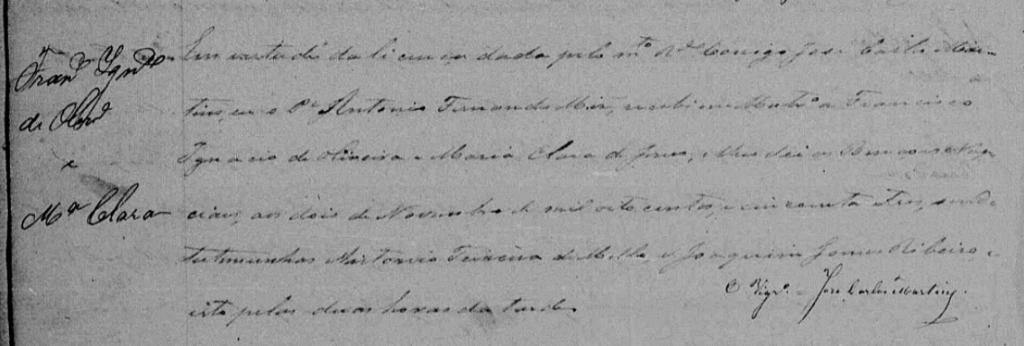 Franco Ignco
de Olivra
e
Ma Clara
Em virtude da licença dada pelo mto Rdo Conego José Carlos Mar-
tins, eu o Pe Antonio Fernando recebi em Matro a Francisco
Ignacio de Oliveira e Maria Clara de Jesus, e lhes dei as Bençaos Nup-
ciaes, aos dois de Novembro de mil oito centos, e cincoenta e tres, sendo
testemunhas Teixeira de Mello, e Joaquim Gomes Ribeiro, e
isto pelas duas horas da tarde.
O Vigro José Carlos Martins